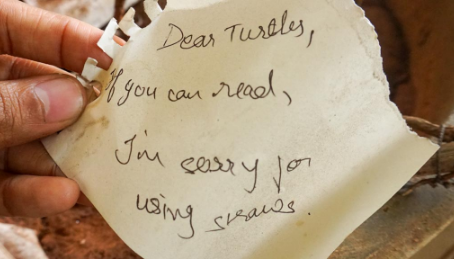 Dear Turtles,
If you can read,
I'm sorry for
using straws.